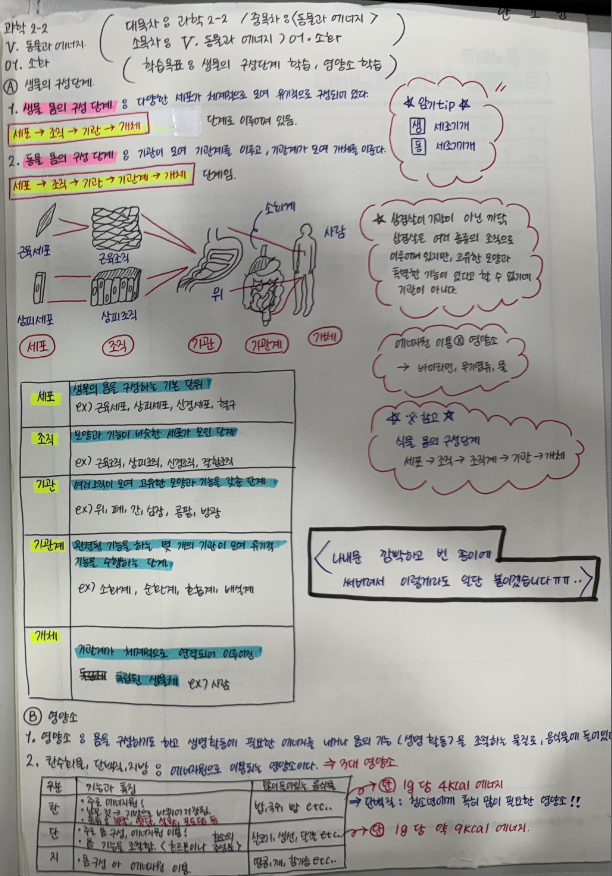 과학 2-2
V. 동물과 에너지.
01. 소화
대목차 : 과학 2-2 / 중목차 : (동물과 에너지)
소목차 : V. 동물과 에너지 > 01. 소화
(학습목표 : 생물의 구성단계 학습, 영양소 학습)
Ⓐ 생물의 구성단계.
1. 생물 몸의 구성 단계 : 다양한 세포가 체계적으로 모여 유기적으로 구성되어 있다.
세포 → 조직 → 기관 → 개체 단계로 이루어져 있음.
2. 동물 몸의 구성 단계 : 기관이 모여 기관계를 이루고, 기관계가 모여 개체를 이룬다.
세포 → 조직 → 기관 → 기관계 → 개체 단계임.
★ 암기 tip ★
생 세조기개
동 세조기기개
근육세포
근육조직
소화계
사람
위
상피세포
상피조직
세포
조직
기관
기관계
개체
★ 삼겹살이 기관이 아닌 까닭
삼겹살은 여러 종류의 조직으로
이루어져 있지만, 고유한 모양과
특별한 기능이 있다고 할 수 없기에
기관이 아니다.
에너지원 이용 ⓧ 영양소
→ 바이타민, 무기염류, 물
참고
식물 몸의 구성단계
세포 → 조직 → 조직계 → 기관 → 개체
세포 생물의 몸을 구성하는 기본 단위
ex) 근육세포, 상피세포, 신경세포, 혈구
조직 모양과 기능이 비슷한 세포가 모인 단계
ex) 근육조직, 상피조직, 신경조직, 결합조직
기관 여러조직이 모여 고유한 모양과 기능을 갖춘 단계
ex) 위, 폐, 간, 심장, 콩팥, 방광
기관계 관련된 기능을 하는 몇 개의 기관이 모여 유기적
기능을 수행하는 단계
ex) 소화계, 순환계, 호흡계, 배설계
개체 기관계가 체계적으로 연결되어 이루어진
독립된 생물체 ex) 사람
깜빡하고 번 종이에
써버려서 이렇게라도 일단 붙이겠습니다ㅠㅠ..
Ⓑ 영양소
1. 영양소 : 몸을 구성하기도 하고 생명활동에 필요한 에너지를 내거나 몸의 기능 (생명 활동)을 조절하는 물질로, 음식물에 들어있다
2. 탄수화물, 단백질, 지방 : 에너지원으로 이용되는 영양소이다. → 3대 영양소
구분 기능과 특징 많이 들어있는 음식물
탄 · 주로 에너지원! 밥, 국수, 빵 etc..
단 · 주로 몸 구성, 에너지원 이용! 살코기, 생선, 달걀 etc..
지 · 몸 구성 or 에너지원 이용. 땅콩, 깨, 참기름 etc..
1g 당 4kcal 에너지
→ 단백질 : 청소년에게 특히 많이 필요한 영양소!!
1g당 약 9kcal 에너지.